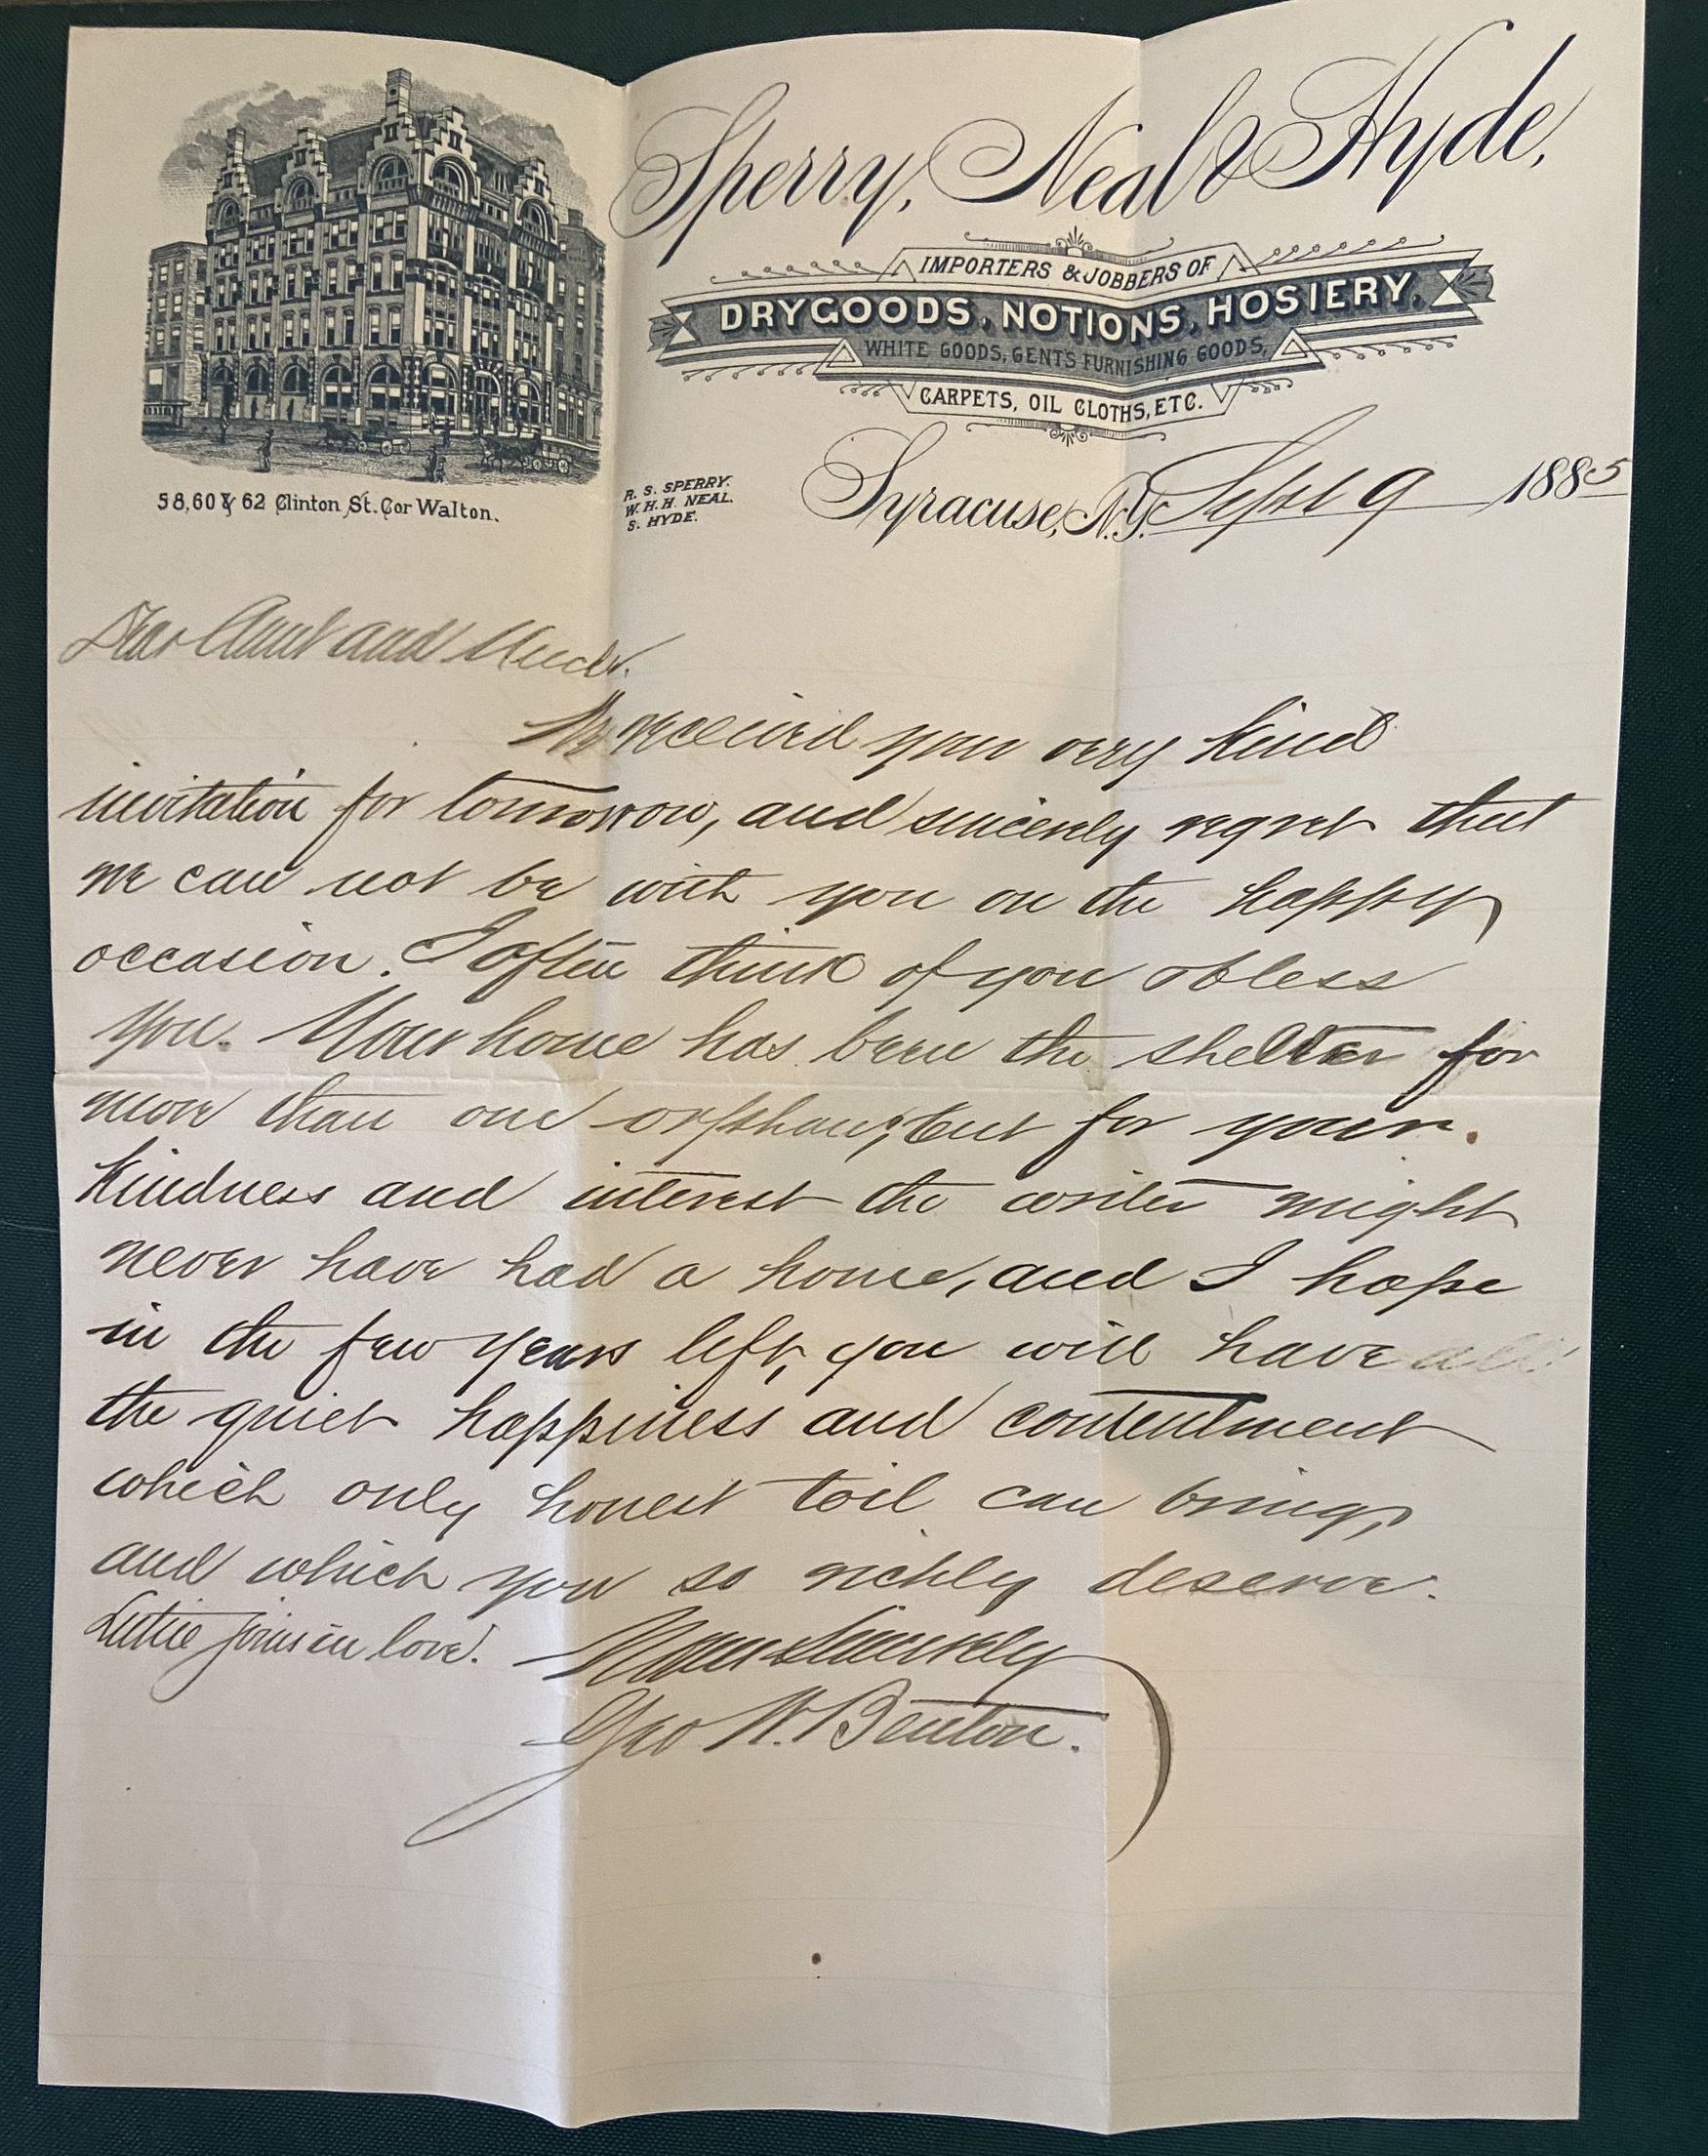 Sperry, Neal & Hyde,
IMPORTERS & JOBBERS OF
DRYGOODS, NOTIONS, HOSIERY,
WHITE GOODS, GENTS FURNISHING GOODS,
CARPETS, OIL CLOTHS, ETC.
58, 60 & 62 Clinton St. Cor Walton.
R. S. SPERRY.
W. H. H. NEAL.
S. HYDE.
Syracuse, N.Y. Sept 9 1885
Dear Aunt and Uncle.
We received your very kind
invitation for tomorrow, and sincerely regret that
we can not be with you on the happy
occasion. I often think of you & bless
you. Your home has been the shelter for
more than one orphan; but for your
kindness and interest the writer might
never have had a home, and I hope
in the few years left, you will have all
the quiet happiness and contentment
which only honest toil can bring,
and which you so richly deserve.
Lutie joins in love. Yours Sincerely
Geo N. Benton.